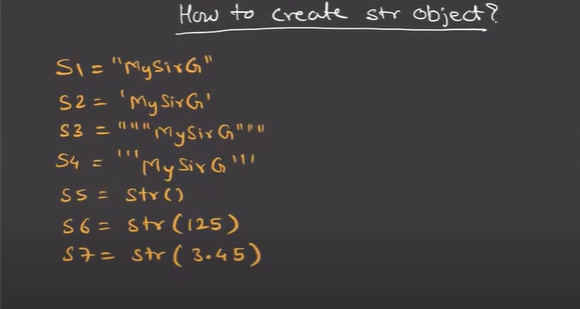 How to create str object?
S1 = "MySirG"
S2 = 'MySirG'
S3 = """MySirG"""
S4 = '''MySirG'''
S5 = str()
S6 = str(125)
S7 = str(3.45)